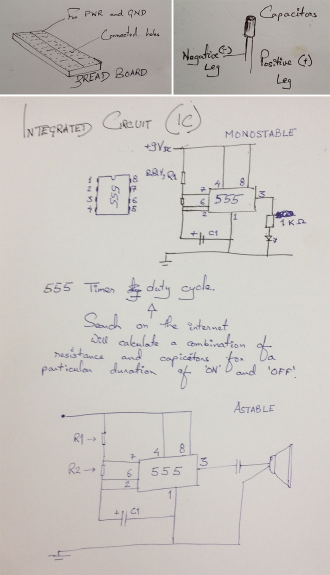 For PWR and GND
Connected holes
BREAD BOARD
Capacitors
Negative (-)
Leg
Positive (+)
Leg
INTEGRATED CIRCUIT (IC)
MONOSTABLE
+9V
1
2
3
4
8
7
6
5
555
R1
4
8
7
6
2
555
3
1
+
C1
1KΩ
555 Timer duty cycle.
Search on the internet
Will calculate a combination of
resistance and capicitors for a
particular duration of 'ON' and 'OFF'.
ASTABLE
R1
R2
4
8
7
6
2
555
3
1
+
C1